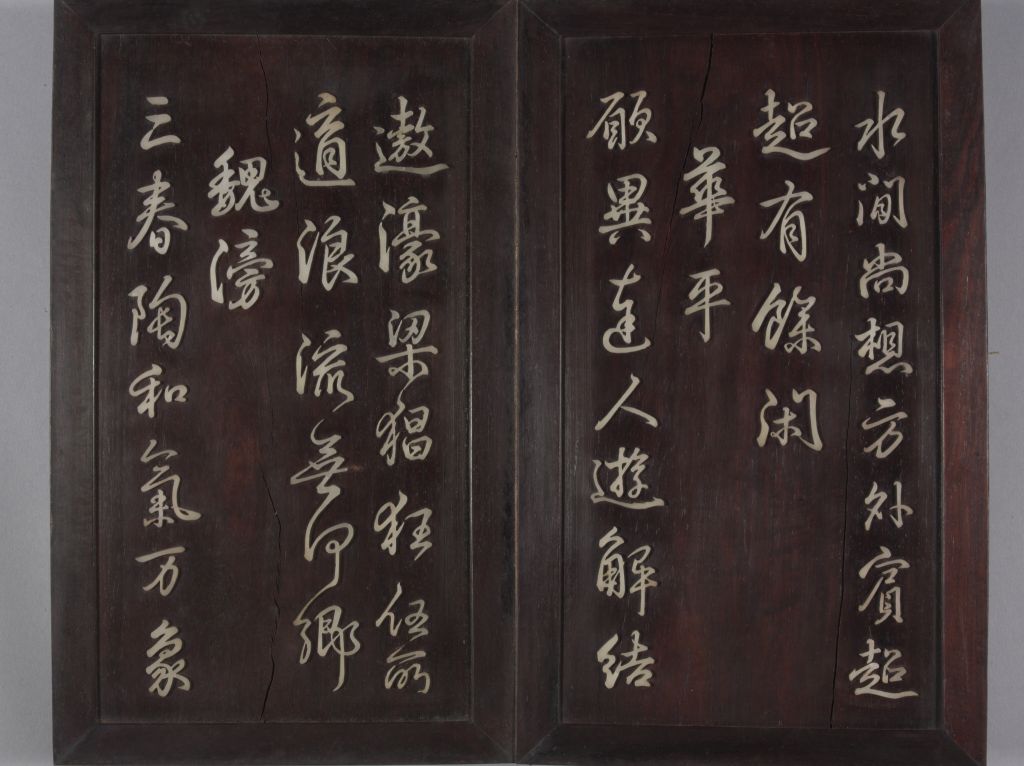 水間尚想方外賓超
超有餘閑
華平
願異達人遊解結
遨濠梁猖狂任所
適浪流無何鄉
魏滂
三春陶和氣万象